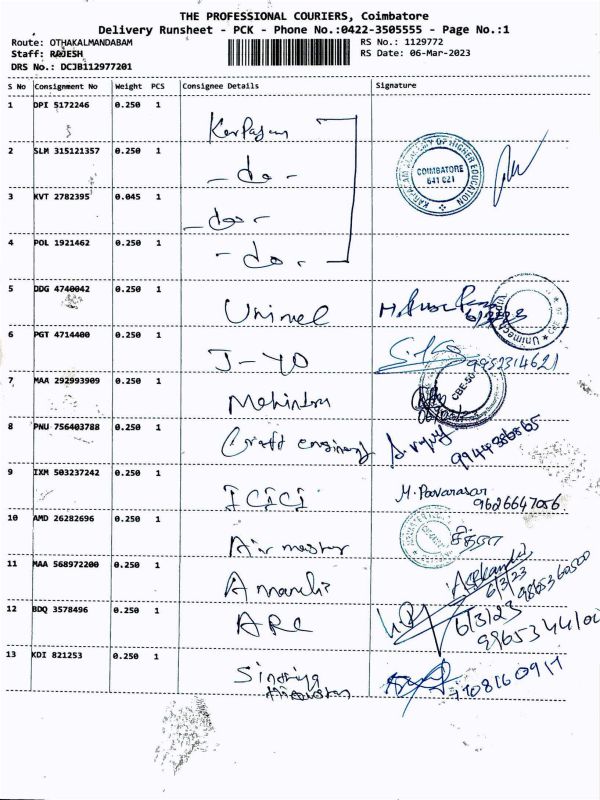 THE PROFESSIONAL COURIERS, Coimbatore
Delivery Runsheet - PCK - Phone No.:0422-3505555 - Page No.:1
Route: OTHAKALMANDABAM RS No.: 1129772
Staff: RAJESH RS Date: 06-Mar-2023
DRS No.: DCJB112977201
S No Consignment No Weight PCS Consignee Details Signature
1 DPI 5172246 0.250 1
2 SLM 315121357 0.250 1 -do-
KARPAGAM ACADEMY OF HIGHER EDUCATION
COIMBATORE
641 021
3 KVT 2782395 0.045 1 -do-
4 POL 1921462 0.250 1 -do-
5 DDG 4740042 0.250 1
6 PGT 4714400 0.250 1 9952314621
7 MAA 292993909 0.250 1 Mahindra
CBE-50
8 PNU 756403788 0.250 1 Craft
9 IXM 503237242 0.250 1 ICICI M. Poovarasan
9626647056
10 AMD 26282696 0.250 1 Air master
11 MAA 568972200 0.250 1 6/3/23
12 BDQ 3578496 0.250 1 ARC 6/3/23
13 KDI 821253 0.250 1